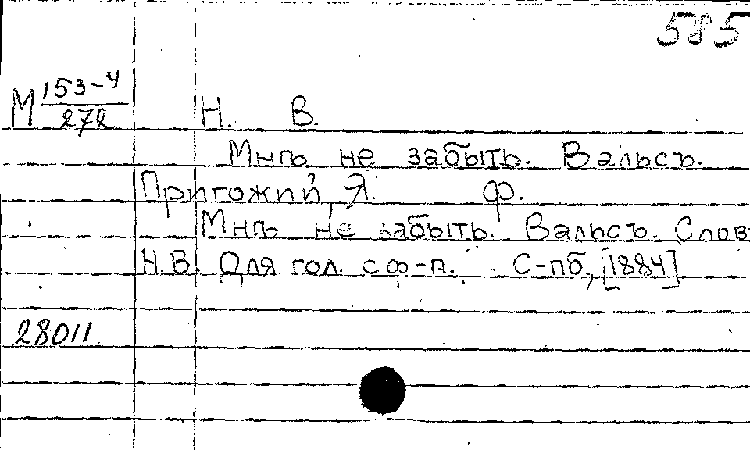 585
М 153-4/272
Н. В.
Мнѣ не забыть. Вальсъ.
Пригожий, Я. ф.
Мнѣ не забыть. Вальсъ. Слов
Н.В. Для гол. с ф-п. С-пб, [1884]
28011